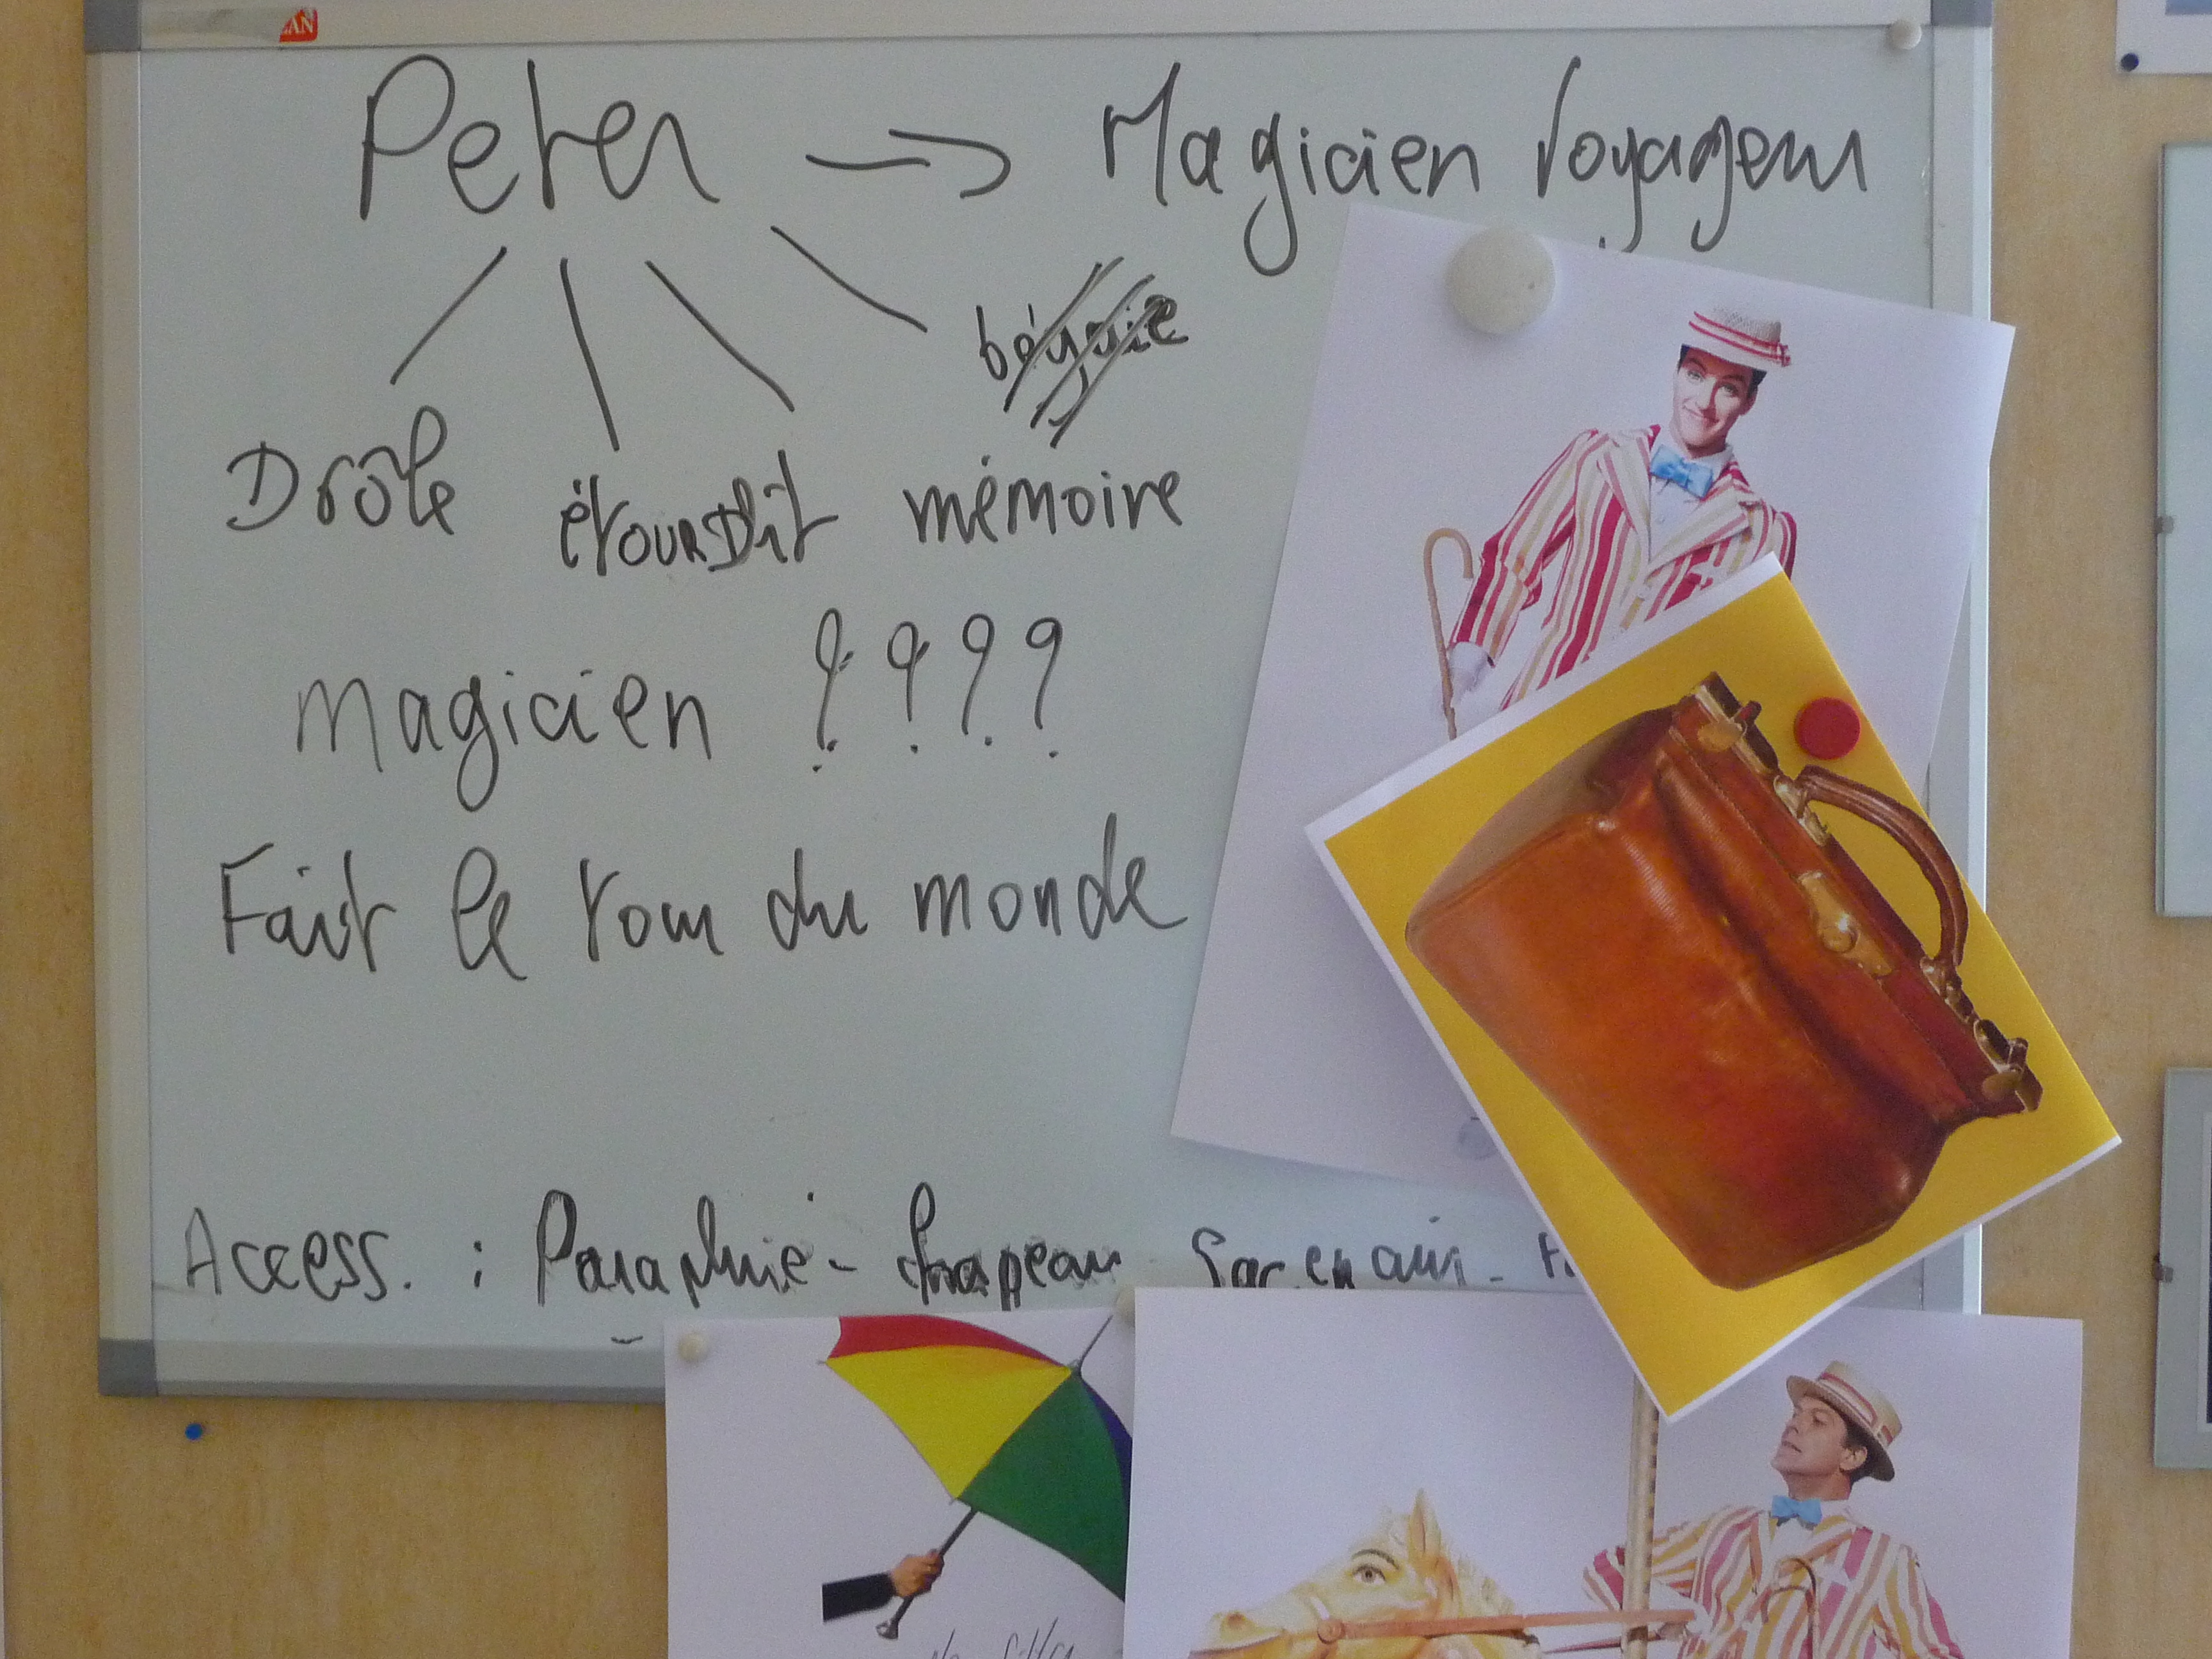 Peter → Magicien Voyageur
Drôle étourdit mémoire
magicien ????
Fait le tour du monde
Access. : Parapluie - chapeau Sac en cuir -